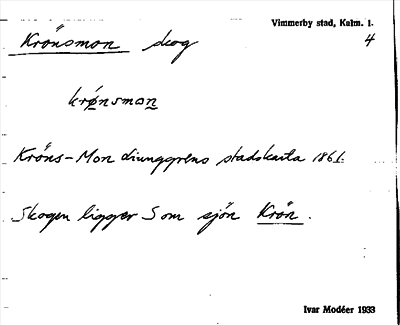 Vimmerby stad, Kalm. l.
Krönsmon skog 4
krǿnsmon
Kröns-Mon Liunggrens stadskarta 1861.
Skogen ligger S om sjön Krön.
Ivar Modéer 1933